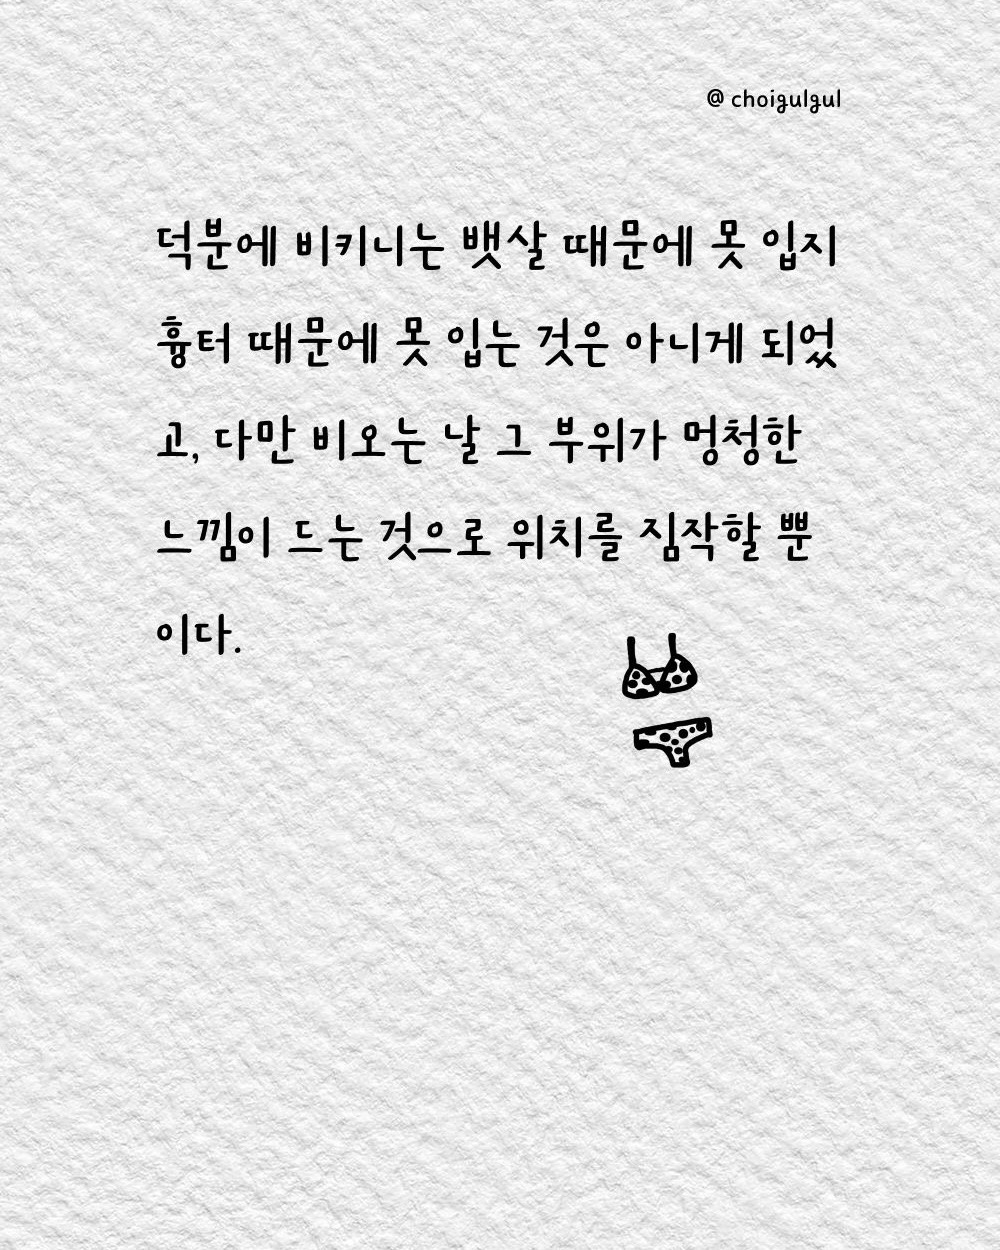 @ choigulgul
덕분에 비키니는 뱃살 때문에 못 입지
흉터 때문에 못 입는 것은 아니게 되었
고, 다만 비오는 날 그 부위가 멍청한
느낌이 드는 것으로 위치를 짐작할 뿐
이다.